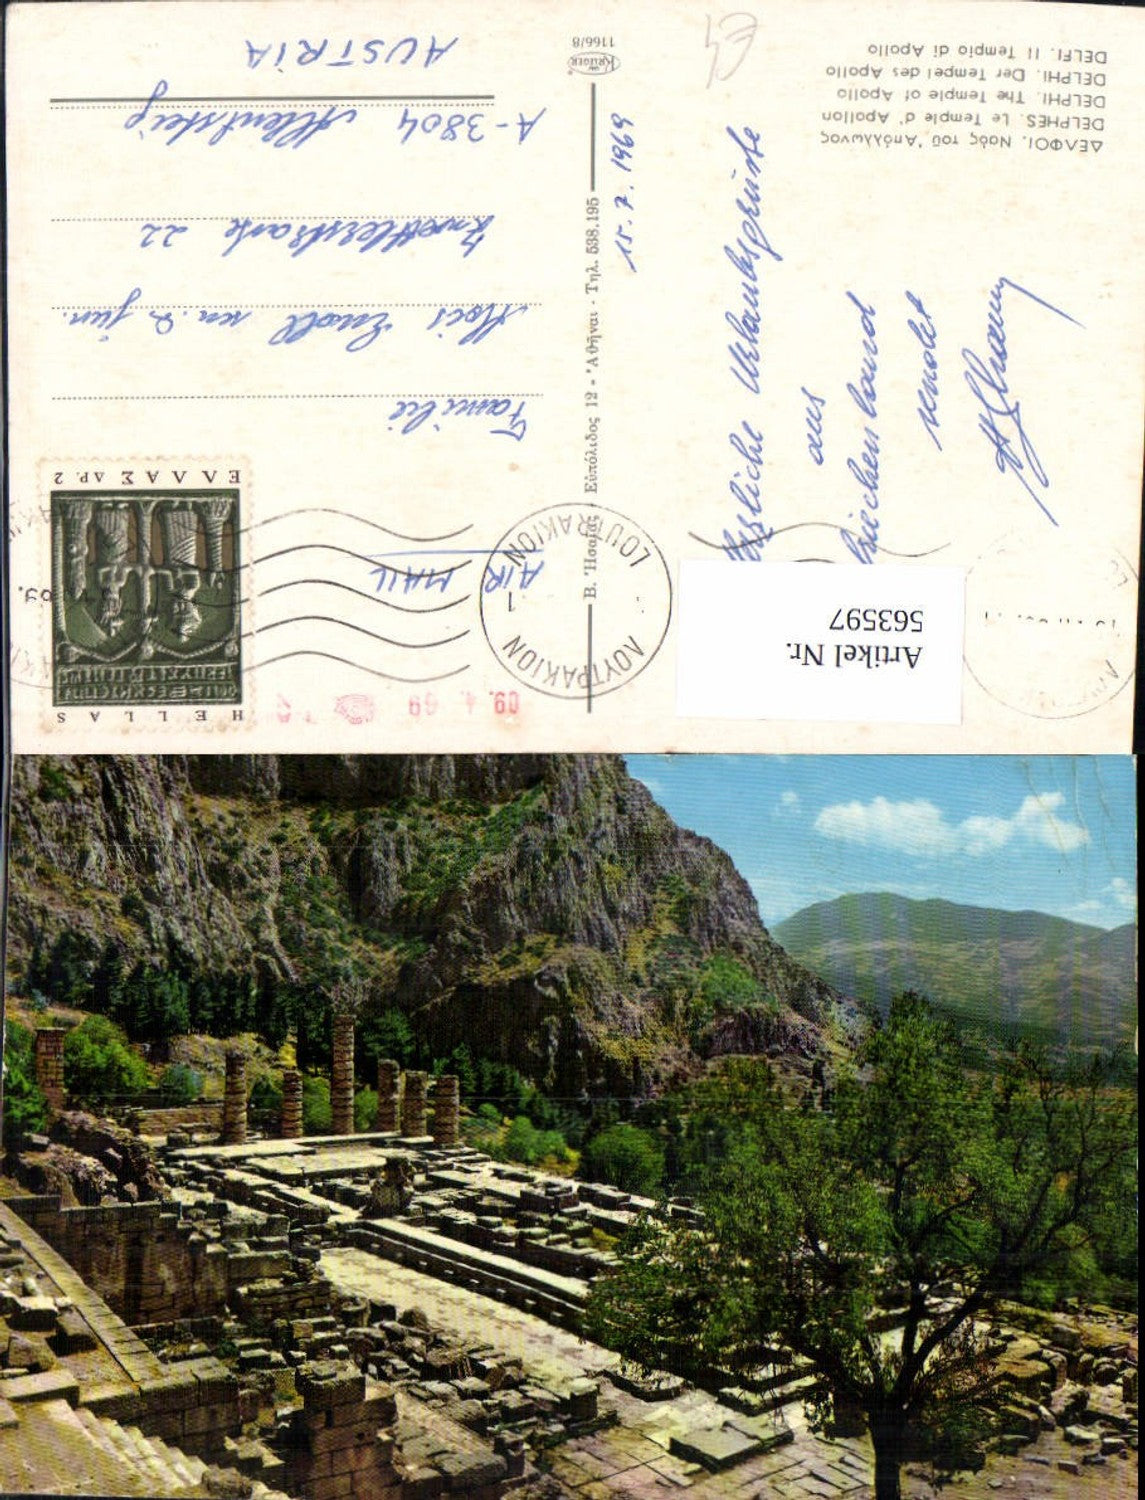 ΔΕΛΦΟΙ. Ναός τοῦ 'Απόλλωνος
DELPHES. Le Temple d' Apollon
DELPHI. The Temple of Apollo
DELPHI. Der Tempel des Apollo
DELFI. Il Tempio di Apollo
15.7.1969
Herzliche Urlaubsgrüsse
aus
Griechenland
sendet
KRÜGER
1166/8
Β. 'Ησαΐας - Εὐπόλιδος 12 - 'Αθῆναι - Τηλ. 538.195
HELLAS
ΕΛΛΑΣ ΔΡ. 2
ΛΟΥΤΡΑΚΙΟΝ
LOUTRAKION
1
09. 4 69
AIR MAIL
Familie
Alois sen. & jun.
Zwettlerstraße 22
A-3804 Allentsteig
AUSTRIA
Artikel Nr.
563597